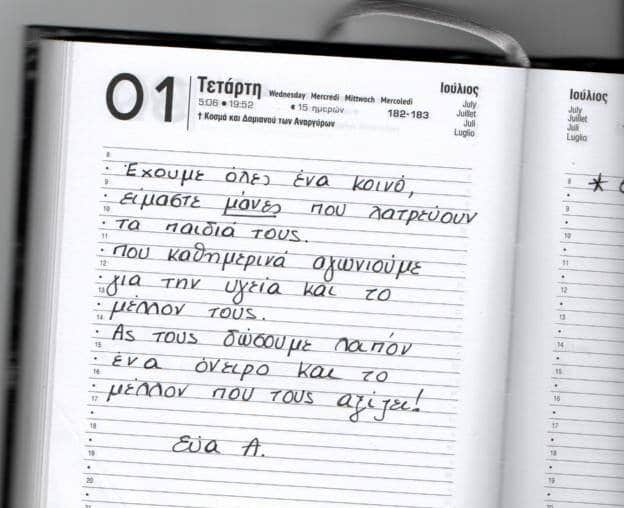 01
Τετάρτη Wednesday Mercredi Mittwoch Mercoledi
5:06 ● 19:52 ☾ 15 ημερών 182-183
† Κοσμά και Δαμιανού των Αναργύρων
Ιούλιος
July
Juillet
Juli
Luglio
8
Έχουμε όλες ένα κοινό,
9
είμαστε μάνες που λατρεύουν
10
τα παιδιά τους.
11
που καθημερινά αγωνιούμε
12
για την υγεία και το
13
μέλλον τους.
14
Ας τους δώσουμε λοιπόν
15
ένα όνειρο και το
16
μέλλον που τους αξίζει!
17
18
Εύα Α.
19
20
Ιούλιος
July
Juillet
Juli
Luglio
8 *
9
10
11
12
13
14
15
16
17
18
19
20